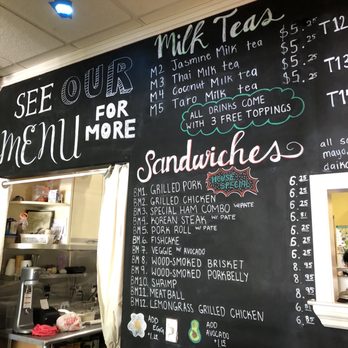 SEE OUR MENU FOR MORE
Milk Teas
M2 Jasmine Milk tea $5.25
M3 Thai Milk tea $5.25
M4 Coconut Milk tea $5.25
M5 Taro Milk tea $5.25
ALL DRINKS COME
WITH 3 FREE TOPPINGS
T12
T13
Sandwiches
HOUSE SPECIAL
BM1. GRILLED PORK
BM2. GRILLED CHICKEN
BM3. SPECIAL HAM COMBO W/PATE
BM4. KOREAN STEAK W/PATE
BM5. PORK ROLL W/PATE
BM6. FISHCAKE
BM7. VEGGIE W/AVOCADO
BM8. WOOD-SMOKED BRISKET
BM9. WOOD-SMOKED PORKBELLY
BM10. SHRIMP
BM11. MEATBALL
BM12. LEMONGRASS GRILLED CHICKEN
6.25
6.25
all
mayo
daiko
ADD
EGG
ADD
AVOCADO